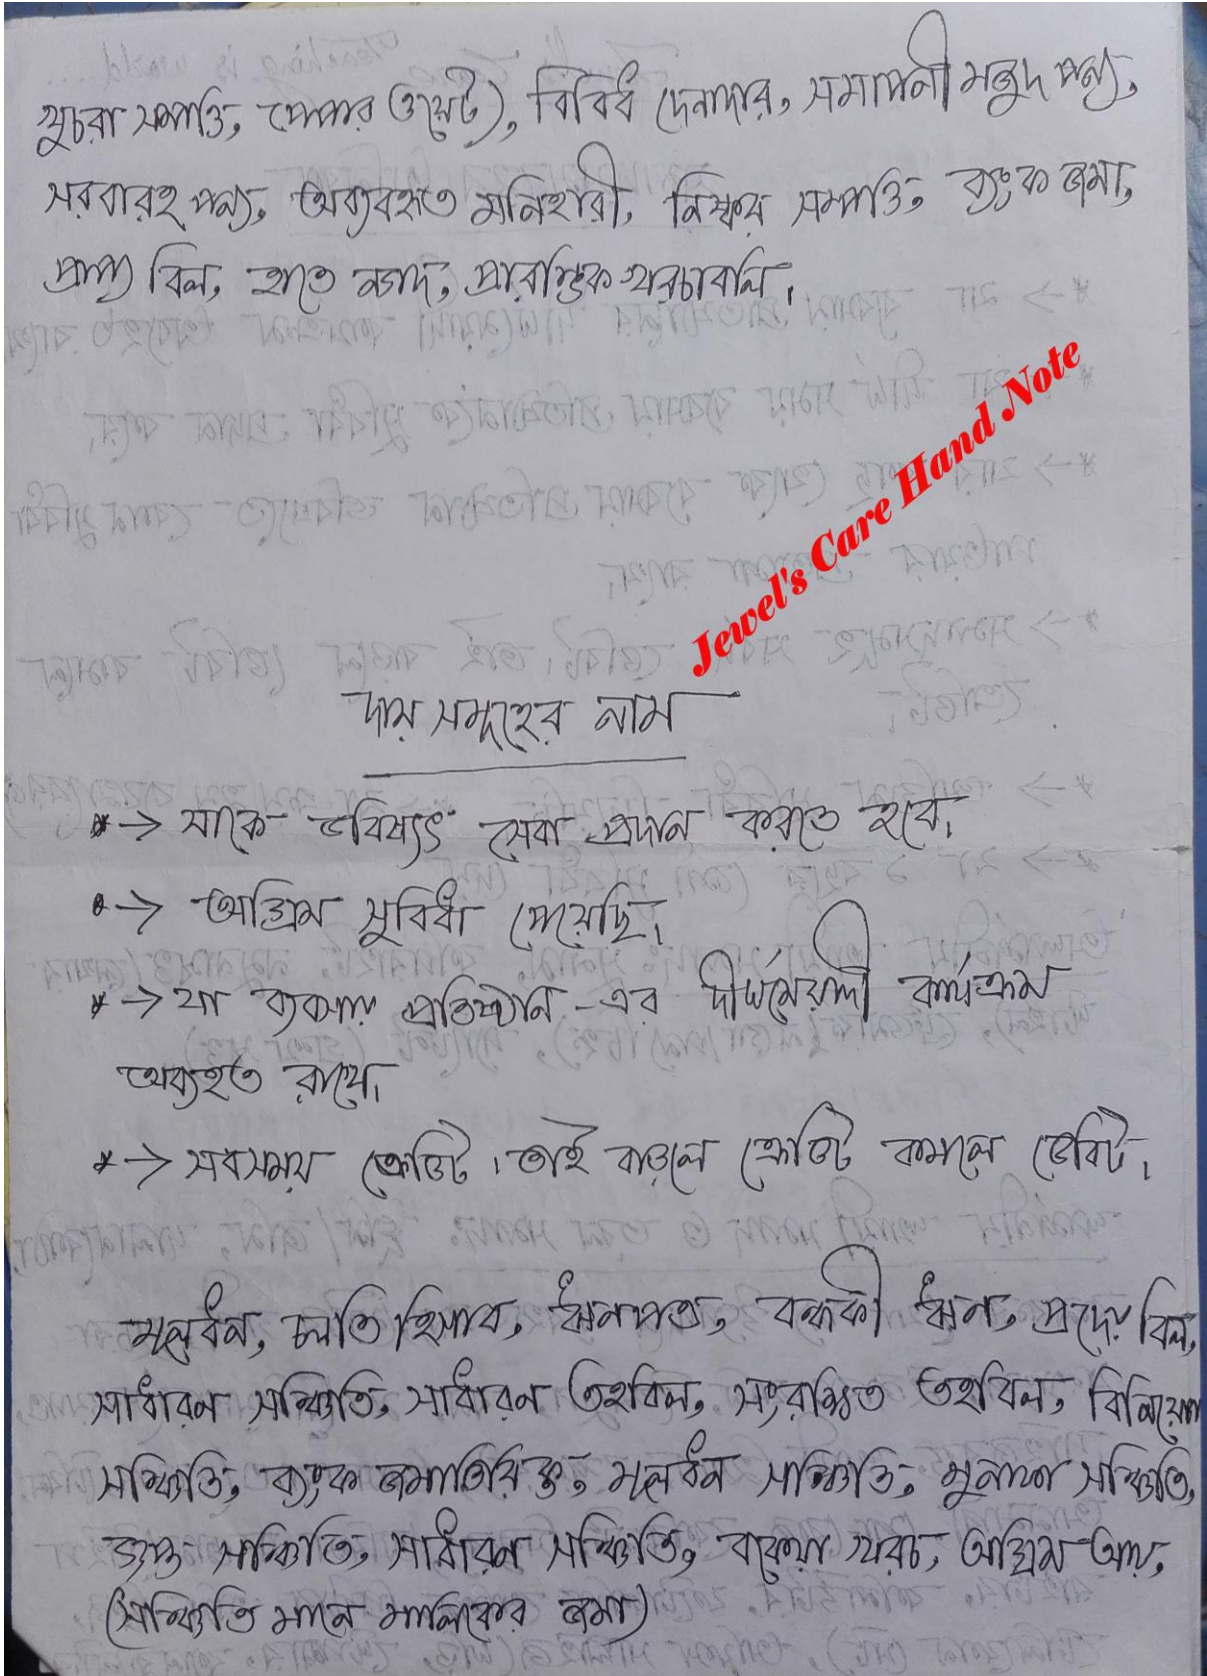 খুচরা সম্পত্তি, পেপার ওয়েট), বিবিধ দেনাদার, সমাপনী মজুদ পন্য,
সরবারহ পন্য, অব্যবহৃত মনিহারী, নিষ্ক্রয় সম্পত্তি, ব্যংক জমা,
প্রাপ্য বিল, হাতে নগদ, প্রারম্ভিক খরচাবলি।
Jewel's Care Hand Note
দায় সমূহের নাম
*→ যাকে ভবিষ্যৎ সেবা প্রদান করতে হবে।
*→ অগ্রিম সুবিধা পেয়েছি।
*→ যা ব্যবসায় প্রতিষ্ঠান-এর দীর্ঘমেয়াদী কার্যক্রম
অব্যহত রাখে।
*→ সবসময় ক্রেডিট। তাই বাড়লে ক্রেডিট কমলে ডেবিট।
মূলধন, চলতি হিসাব, ঋনপত্র, বন্ধকী ঋন, প্রদেয় বিল,
সাধারন সঞ্চিতি, সাধারন তহবিল, সংরক্ষিত তহবিল, বিনিয়োগ
সঞ্চিতি, ব্যংক জমাতিরিক্ত, মূলধন সঞ্চিতি, মুনাফা সঞ্চিতি,
সঞ্চিতি, সাধারন সঞ্চিতি, বকেয়া খরচ, অগ্রিম আয়,
(সঞ্চিতি মানে মালিকের জমা)